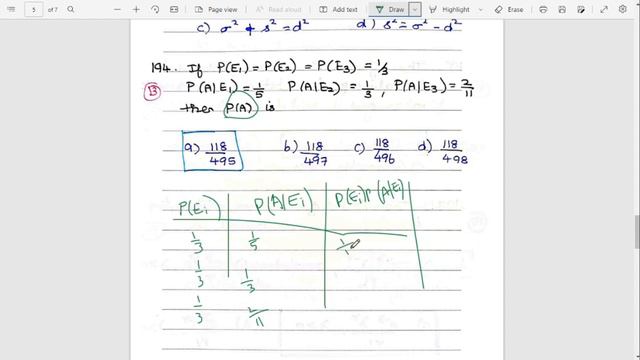 5 of 7 Page view Read aloud Draw Highlight Erase
c) σ² & s² = d² d) s² = σ² - d²
194. If P(E₁) = P(E₂) = P(E₃) = 1/3
13 P(A|E₁) = 1/5 P(A|E₂) = 1/3, P(A|E₃) = 2/11
then P(A) is
a) 118/495 b) 118/497 c) 118/496 d) 118/498
P(Ei) P(A|Ei) P(Ei)P(A|Ei)
1/3 1/5
1/3 1/3
1/3 2/11